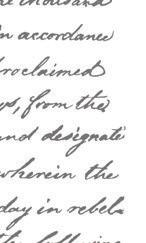 thousand
in accordance
proclaimed
from the
and designate
wherein the
day in rebel-